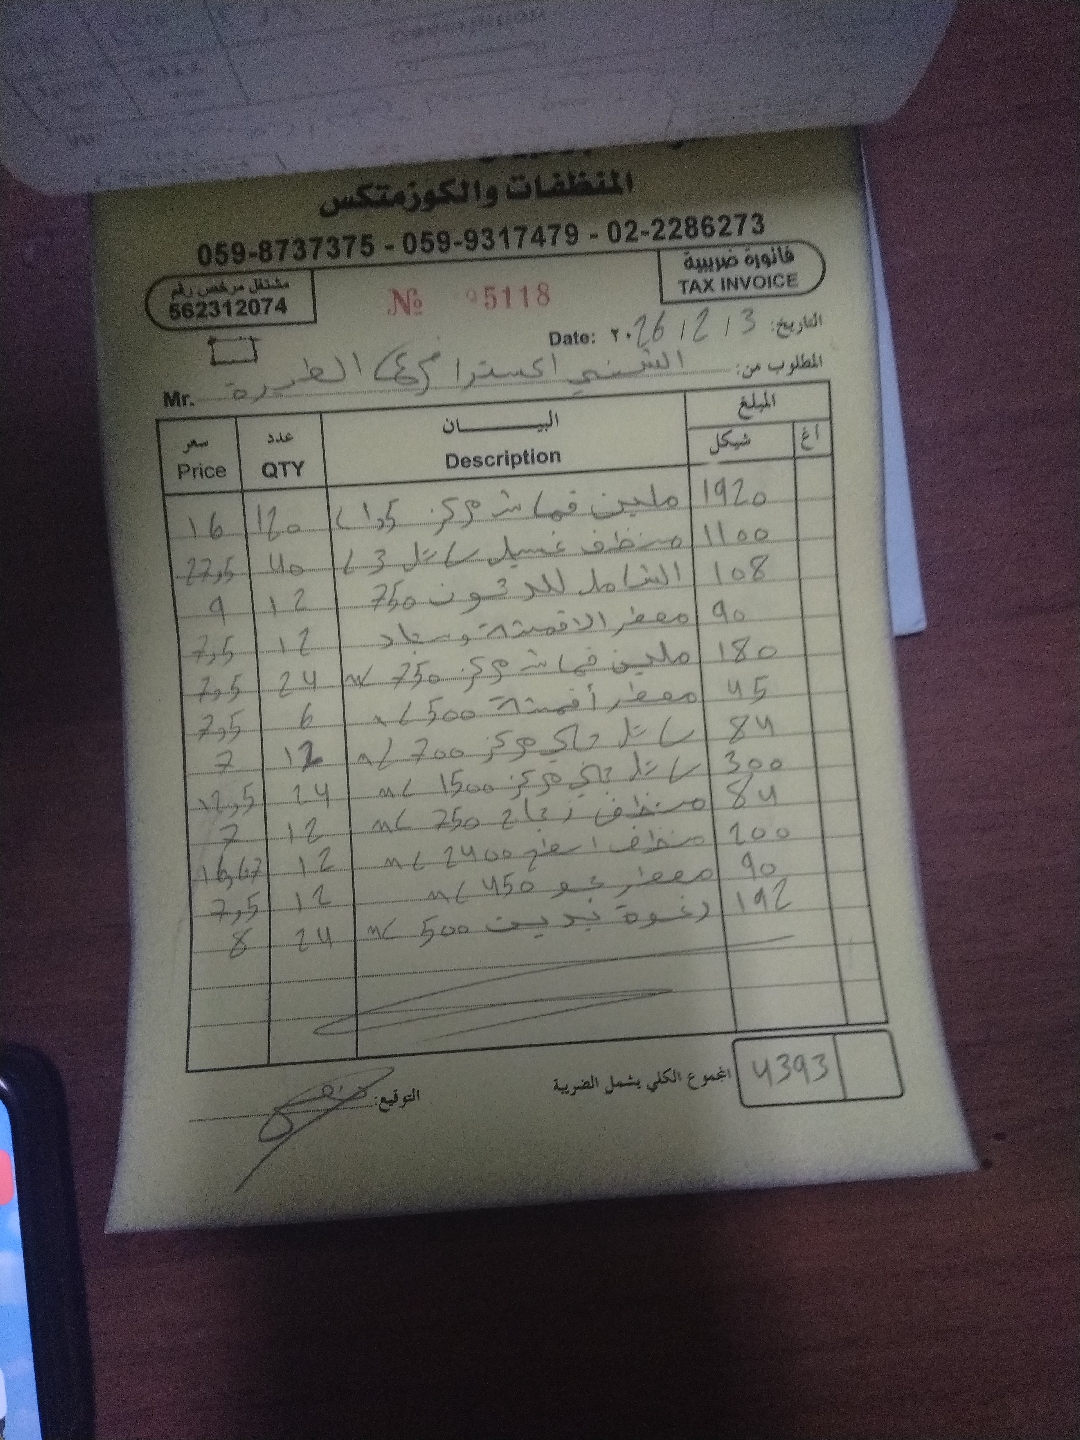 المنظفات والكوزمتكس
059-8737375 - 059-9317479 - 02-2286273
مشتغل مرخص رقم
562312074
№ 05118
فاتورة ضريبية
TAX INVOICE
Date: ٢٠26 / 2 / 3 التاريخ:
المطلوب من: الشني اكسترا الطيرة Mr.
سعر Price عدد QTY البيــــــان Description المبلغ شيكل اغ
16 120 ملين قماش مركز 1,5 L 1920
27,5 40 منظف غسيل سائل 3 L 1100
9 12 الشامل للدهون 750 108
7,5 12 معطر الاقمشة وسجاد 90
7,5 24 ملين قماش مركز 750 mL 180
7,5 6 معطر أقمشة 500 mL 45
7 12 سائل جلي مركز 700 mL 84
12,5 24 سائل جلي مركز 1500 mL 300
7 12 منظف زجاج 750 mL 84
16,67 12 منظف اسطح 2400 mL 200
7,5 12 معطر جو 450 mL 90
8 24 رغوة تبييت 500 mL 192
المجموع الكلي يشمل الضريبة 4393
التوقيع: